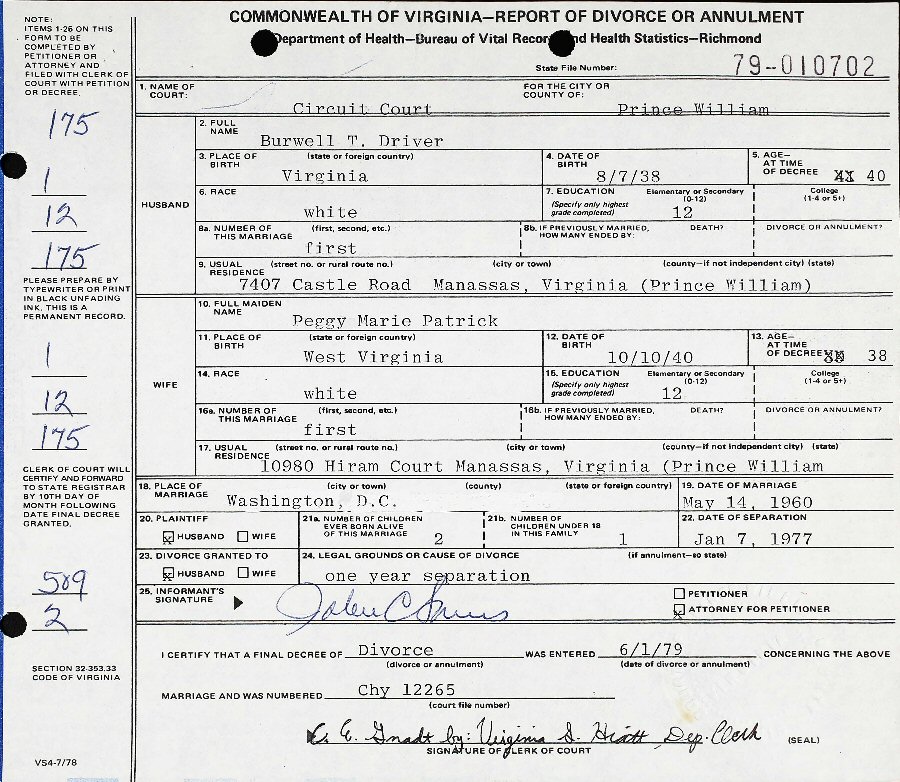 COMMONWEALTH OF VIRGINIA—REPORT OF DIVORCE OR ANNULMENT
Department of Health—Bureau of Vital Records and Health Statistics—Richmond
State File Number: 79-010702
NOTE:
ITEMS 1-26 ON THIS
FORM TO BE
COMPLETED BY
PETITIONER OR
ATTORNEY AND
FILED WITH CLERK OF
COURT WITH PETITION
OR DECREE.
175
1
12
175
PLEASE PREPARE BY
TYPEWRITER OR PRINT
IN BLACK UNFADING
INK. THIS IS A
PERMANENT RECORD.
1
12
175
CLERK OF COURT WILL
CERTIFY AND FORWARD
TO STATE REGISTRAR
BY 10TH DAY OF
MONTH FOLLOWING
DATE FINAL DECREE
GRANTED.
589
2
SECTION 32-353.33
CODE OF VIRGINIA
VS4-7/78
1. NAME OF COURT: Circuit Court FOR THE CITY OR COUNTY OF: Prince William
HUSBAND
2. FULL NAME Burwell T. Driver
3. PLACE OF BIRTH (state or foreign country) Virginia 4. DATE OF BIRTH 8/7/38 5. AGE— AT TIME OF DECREE 40
6. RACE white 7. EDUCATION (Specify only highest grade completed) Elementary or Secondary (0-12) 12 College (1-4 or 5+)
8a. NUMBER OF THIS MARRIAGE (first, second, etc.) first 8b. IF PREVIOUSLY MARRIED, HOW MANY ENDED BY: DEATH? DIVORCE OR ANNULMENT?
9. USUAL RESIDENCE (street no. or rural route no.) (city or town) (county—if not independent city) (state)
7407 Castle Road Manassas, Virginia (Prince William)
WIFE
10. FULL MAIDEN NAME Peggy Marie Patrick
11. PLACE OF BIRTH (state or foreign country) West Virginia 12. DATE OF BIRTH 10/10/40 13. AGE— AT TIME OF DECREE 38
14. RACE white 15. EDUCATION (Specify only highest grade completed) Elementary or Secondary (0-12) 12 College (1-4 or 5+)
16a. NUMBER OF THIS MARRIAGE (first, second, etc.) first 16b. IF PREVIOUSLY MARRIED, HOW MANY ENDED BY: DEATH? DIVORCE OR ANNULMENT?
17. USUAL RESIDENCE (street no. or rural route no.) (city or town) (county—if not independent city) (state)
10980 Hiram Court Manassas, Virginia (Prince William
18. PLACE OF MARRIAGE (city or town) (county) (state or foreign country) Washington, D.C. 19. DATE OF MARRIAGE May 14, 1960
20. PLAINTIFF X HUSBAND WIFE 21a. NUMBER OF CHILDREN EVER BORN ALIVE OF THIS MARRIAGE 2 21b. NUMBER OF CHILDREN UNDER 18 IN THIS FAMILY 1 22. DATE OF SEPARATION Jan 7, 1977
23. DIVORCE GRANTED TO X HUSBAND WIFE 24. LEGAL GROUNDS OR CAUSE OF DIVORCE (if annulment—so state) one year separation
25. INFORMANT'S SIGNATURE PETITIONER
X ATTORNEY FOR PETITIONER
I CERTIFY THAT A FINAL DECREE OF Divorce WAS ENTERED 6/1/79 CONCERNING THE ABOVE
(divorce or annulment) (date of divorce or annulment)
MARRIAGE AND WAS NUMBERED Chy 12265
(court file number)
by: Virginia S. Hiatt, Dep. Clerk
SIGNATURE OF CLERK OF COURT (SEAL)